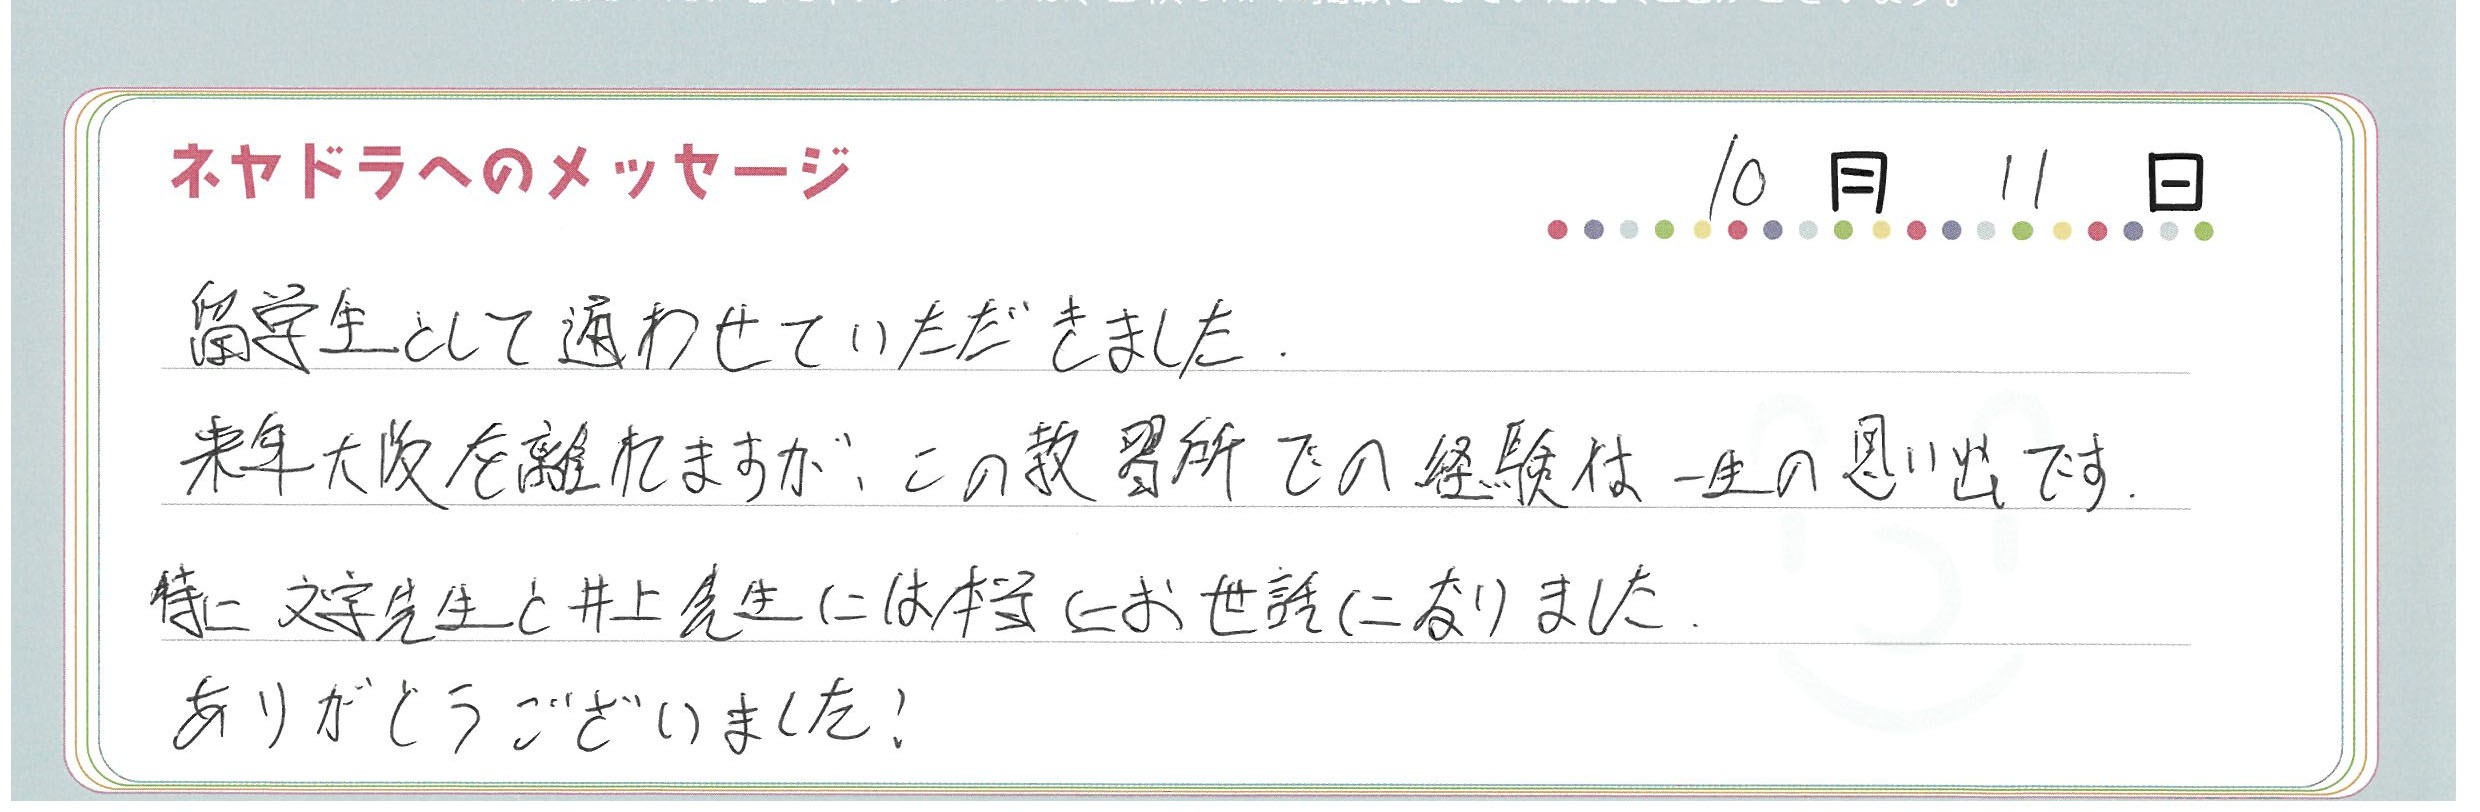 ネヤドラへのメッセージ
10月 11日
留学生として通わせていただきました.
来年大阪を離れますが、この教習所での経験は一生の思い出です.
特に文字先生と井上先生には本当にお世話になりました.
ありがとうございました!